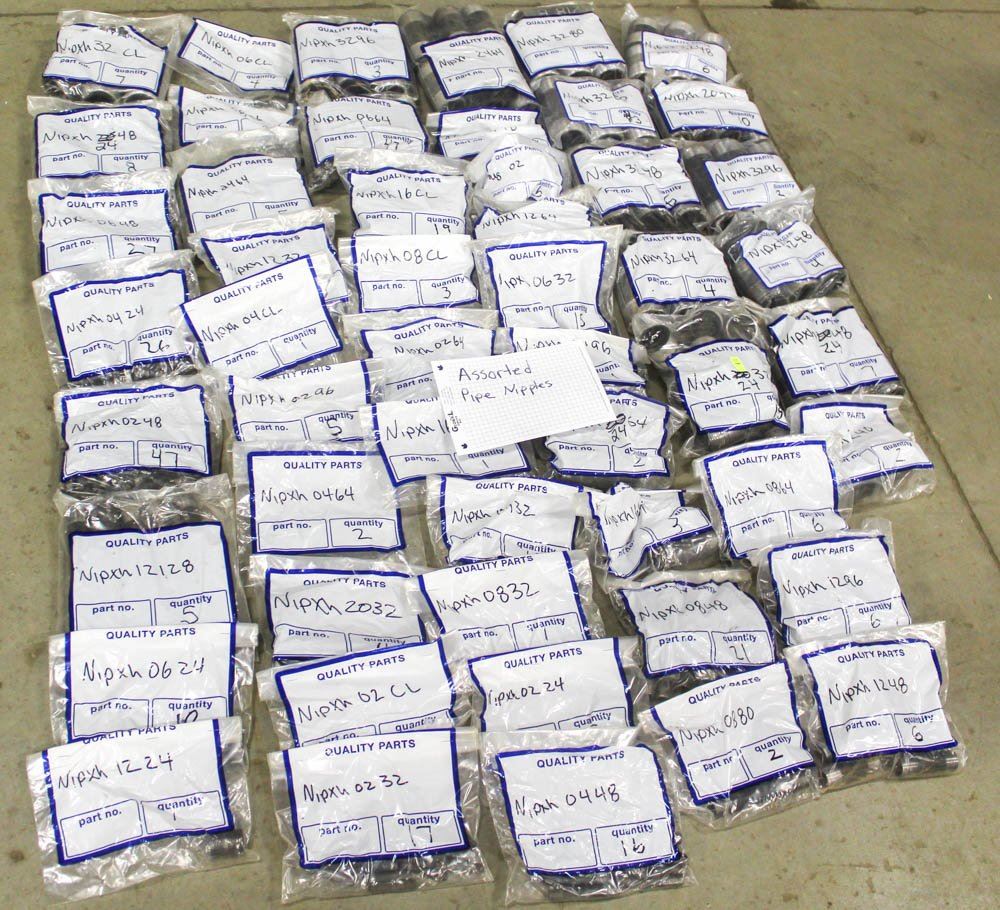 QUALITY PARTS
Nipxh 32 CL
part no. quantity
7
QUALITY PARTS
Nipxh 06CL
part no. quantity
4
QUALITY PARTS
Nipxh3296
part no. quantity
3
QUALITY PARTS
2464
part no.
QUALITY PARTS
Nipxh 3280
part no. quantity
QUALITY PARTS
48
part no. quantity
6
QUALITY PARTS
Nipxh 48
24
part no. quantity
2
part no. quantity
QUALITY PARTS
Nipxh 0664
part no. quantity
47
QUALITY PARTS
part no. quantity
QUALITY PARTS
Nipxh 326
QUALITY PARTS
Nipxh 20
part no. quantity
QUALITY PARTS
Nipxh 0648
part no. quantity
27
QUALITY PARTS
Nipxh 2464
part no. quantity
QUALITY PARTS
Nipxh 16CL
part no. quantity
19
02
5
QUALITY PARTS
Nipxh 3248
part no. quantity
QUALITY PARTS
Nipxh3296
part no. quantity
2
QUALITY PARTS
Nipxh 0424
part no. quantity
26
QUALITY PARTS
Nipxh 1232
part no.
QUALITY PARTS
Nipxh 04CL
part no. quantity
1
QUALITY PARTS
Nipxh 08CL
part no. quantity
3
Nipxh 1264
QUALITY PARTS
Nipxh 0632
part no. quantity
15
QUALITY PARTS
Nipxh 3264
part no. quantity
4
Nipxh 248
part no. quantity
4
QUALITY PARTS
Nipxh 0264
part no.
QUALITY PARTS
96
Assorted
Pipe Nipples
QUALITY PARTS
24
part no. quantity
QUALITY PARTS
Nipxh 48
24
part no. quantity
QUALITY PARTS
Nipxh0248
part no. quantity
47
QUALITY PARTS
Nipxh 0296
part no. quantity
5
QUALITY PARTS
Nipxh 16
part no. quantity
1
64
24
part no. quantity
2
part no. quantity
2
QUALITY PARTS
Nipxh 0464
part no. quantity
2
QUALITY PARTS
132
part no. quantity
QUALITY PARTS
Nipxh
part no.
3
QUALITY PARTS
Nipxh 0864
part no. quantity
6
QUALITY PARTS
Nipxh 12128
part no. quantity
5
QUALITY PARTS
Nipxh 2032
part no. quantity
QUALITY PARTS
Nipxh 0832
part no. quantity
1
QUALITY PARTS
Nipxh 0848
part no. quantity
QUALITY PARTS
Nipxh 1296
part no. quantity
6
QUALITY PARTS
Nipxh 0624
part no. quantity
10
QUALITY PARTS
Nipxh 02 CL
part no. quantity
QUALITY PARTS
Nipxh 0224
part no. quantity
QUALITY PARTS
Nipxh 0880
part no. quantity
2
QUALITY PARTS
Nipxh 1248
part no. quantity
6
QUALITY PARTS
Nipxh 1224
part no. quantity
1
QUALITY PARTS
Nipxh 0232
part no. quantity
17
QUALITY PARTS
Nipxh 0448
part no. quantity
16